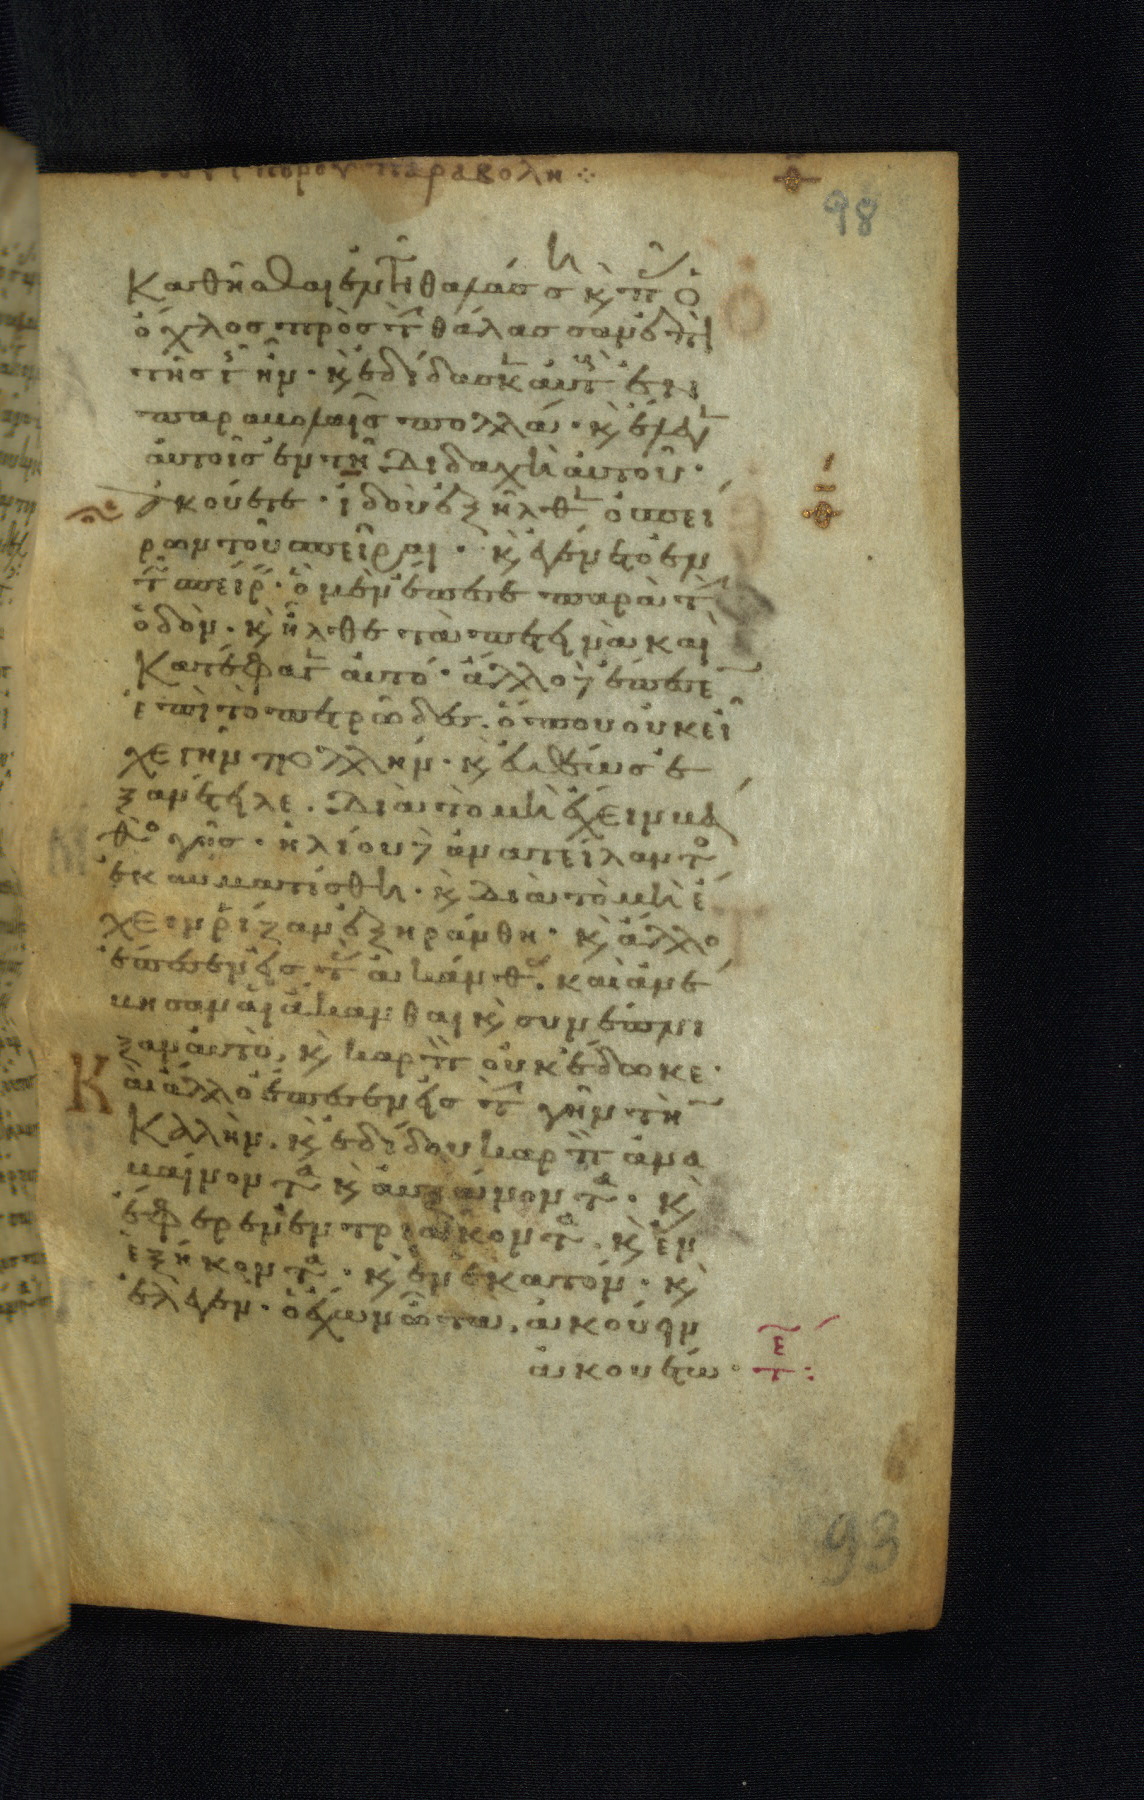 σπόρου παραβολη
98
Καθῆσθαι ἐν τῆ θαλάσση κ πᾶς ὁ
ὄχλος πρὸς τ θάλασσαν ἐπὶ
τῆς γῆς ἦν · κ ἐδίδασκ αὐτ ἐν
παραβολαῖς πολλὰ · κ ἔλεγ
αὐτοῖς ἐν τῆ διδαχῆ αὐτοῦ ·
ἀκούετε · ἰδοὺ ἐξῆλθ ὁ σπεί
ρων τοῦ σπεῖραι · κ ἐγένετο ἐν
τ σπείρ · ὃ μὲν ἔπεσε παρὰ τ
ὁδὸν · κ ἦλθε τὰ πετεινὰ καὶ
Κατέφαγ αὐτό · ἄλλο δ ἔπεσε
ἐπὶ τὸ πετρῶδες · ὅπου οὐκ εἶ
χε γῆν πολλήν · κ εὐθέως ἐ
ξανέτειλε · διὰ τὸ μὴ ἔχειν βά
θο γῆς · ἡλίου δ ἀνατείλαντο
ἐκαυματίσθη · κ διὰ τὸ μὴ ἔ
χειν ῥίζαν ἐξηράνθη · κ ἄλλο
ἔπεσεν εἰς τ ἀκάνθ · καὶ ἀνέ
βησαν αἱ ἄκανθαι κ συνέπνι
ξαν αὐτὸ, κ καρπ οὐκ ἔδωκε ·
Κ
αὶ ἄλλο ἔπεσεν εἰς τ γῆν τὴ
Καλὴν · κ ἐδίδου καρπ ἀνα
βαίνοντα κ αὐξάνοντα · κ
ἔφερεν ἐν τριάκοντα · κ ἐν
ἑξήκοντα · κ ἐν ἑκατόν · κ
ἔλεγεν · ὁ ἔχων ὦτα ἀκούειν
ἀκουέτω ·
93